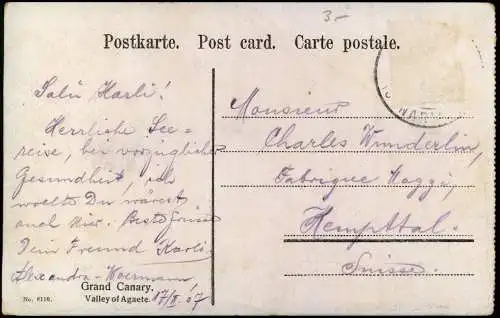 3.-
Postkarte. Post card. Carte postale.
Salü Karli!
Herrliche See-
reise, bei vorzüglicher
Gesundheit, ich
wollte Du wärest
auch hier. Beste Grüsse
Dein Freund Karli
Alexandra-Woermann
17/II 07
Grand Canary.
Valley of Agaete.
No. 6116.
Monsieur
Charles Wunderlin,
Fabrique Maggi,
Kempttal.
Suisse.